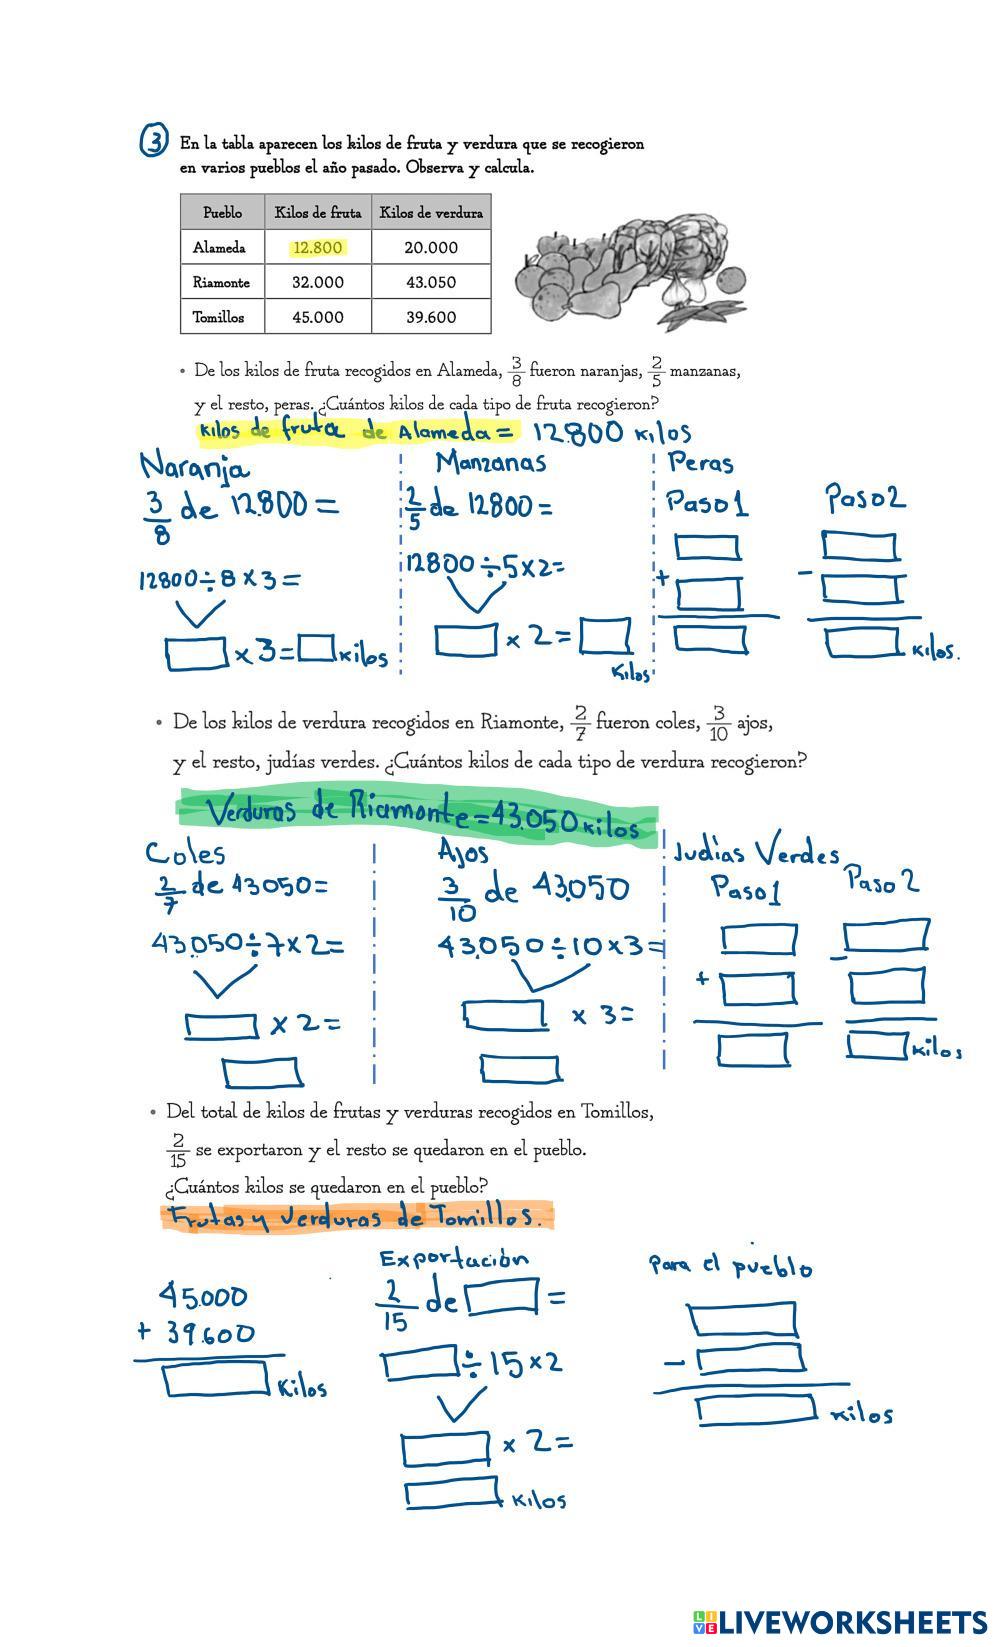 3 En la tabla aparecen los kilos de fruta y verdura que se recogieron
en varios pueblos el año pasado. Observa y calcula.
Pueblo Kilos de fruta Kilos de verdura
Alameda 12.800 20.000
Riamonte 32.000 43.050
Tomillos 45.000 39.600
• De los kilos de fruta recogidos en Alameda, 3/8 fueron naranjas, 2/5 manzanas,
y el resto, peras. ¿Cuántos kilos de cada tipo de fruta recogieron?
Kilos de fruta de Alameda = 12.800 kilos
Naranja Manzanas Peras
3/8 de 12.800 = 2/5 de 12800 = Paso 1 Paso 2
12800 ÷ 8 x 3 = 12800 ÷ 5 x 2 =
+ -
x 3 = kilos x 2 = kilos kilos.
• De los kilos de verdura recogidos en Riamonte, 2/7 fueron coles, 3/10 ajos,
y el resto, judías verdes. ¿Cuántos kilos de cada tipo de verdura recogieron?
Verduras de Riamonte = 43.050 kilos
Coles Ajos Judías Verdes
2/7 de 43050 = 3/10 de 43.050 Paso 1 Paso 2
43.050 ÷ 7 x 2 = 43.050 ÷ 10 x 3 =
+ -
x 2 = x 3 =
kilos
• Del total de kilos de frutas y verduras recogidos en Tomillos,
2/15 se exportaron y el resto se quedaron en el pueblo.
¿Cuántos kilos se quedaron en el pueblo?
Frutas y Verduras de Tomillos.
Exportación Para el pueblo
45.000 2/15 de =
+ 39.600
÷ 15 x 2 -
Kilos kilos
x 2 =
kilos
LIVE LIVEWORKSHEETS